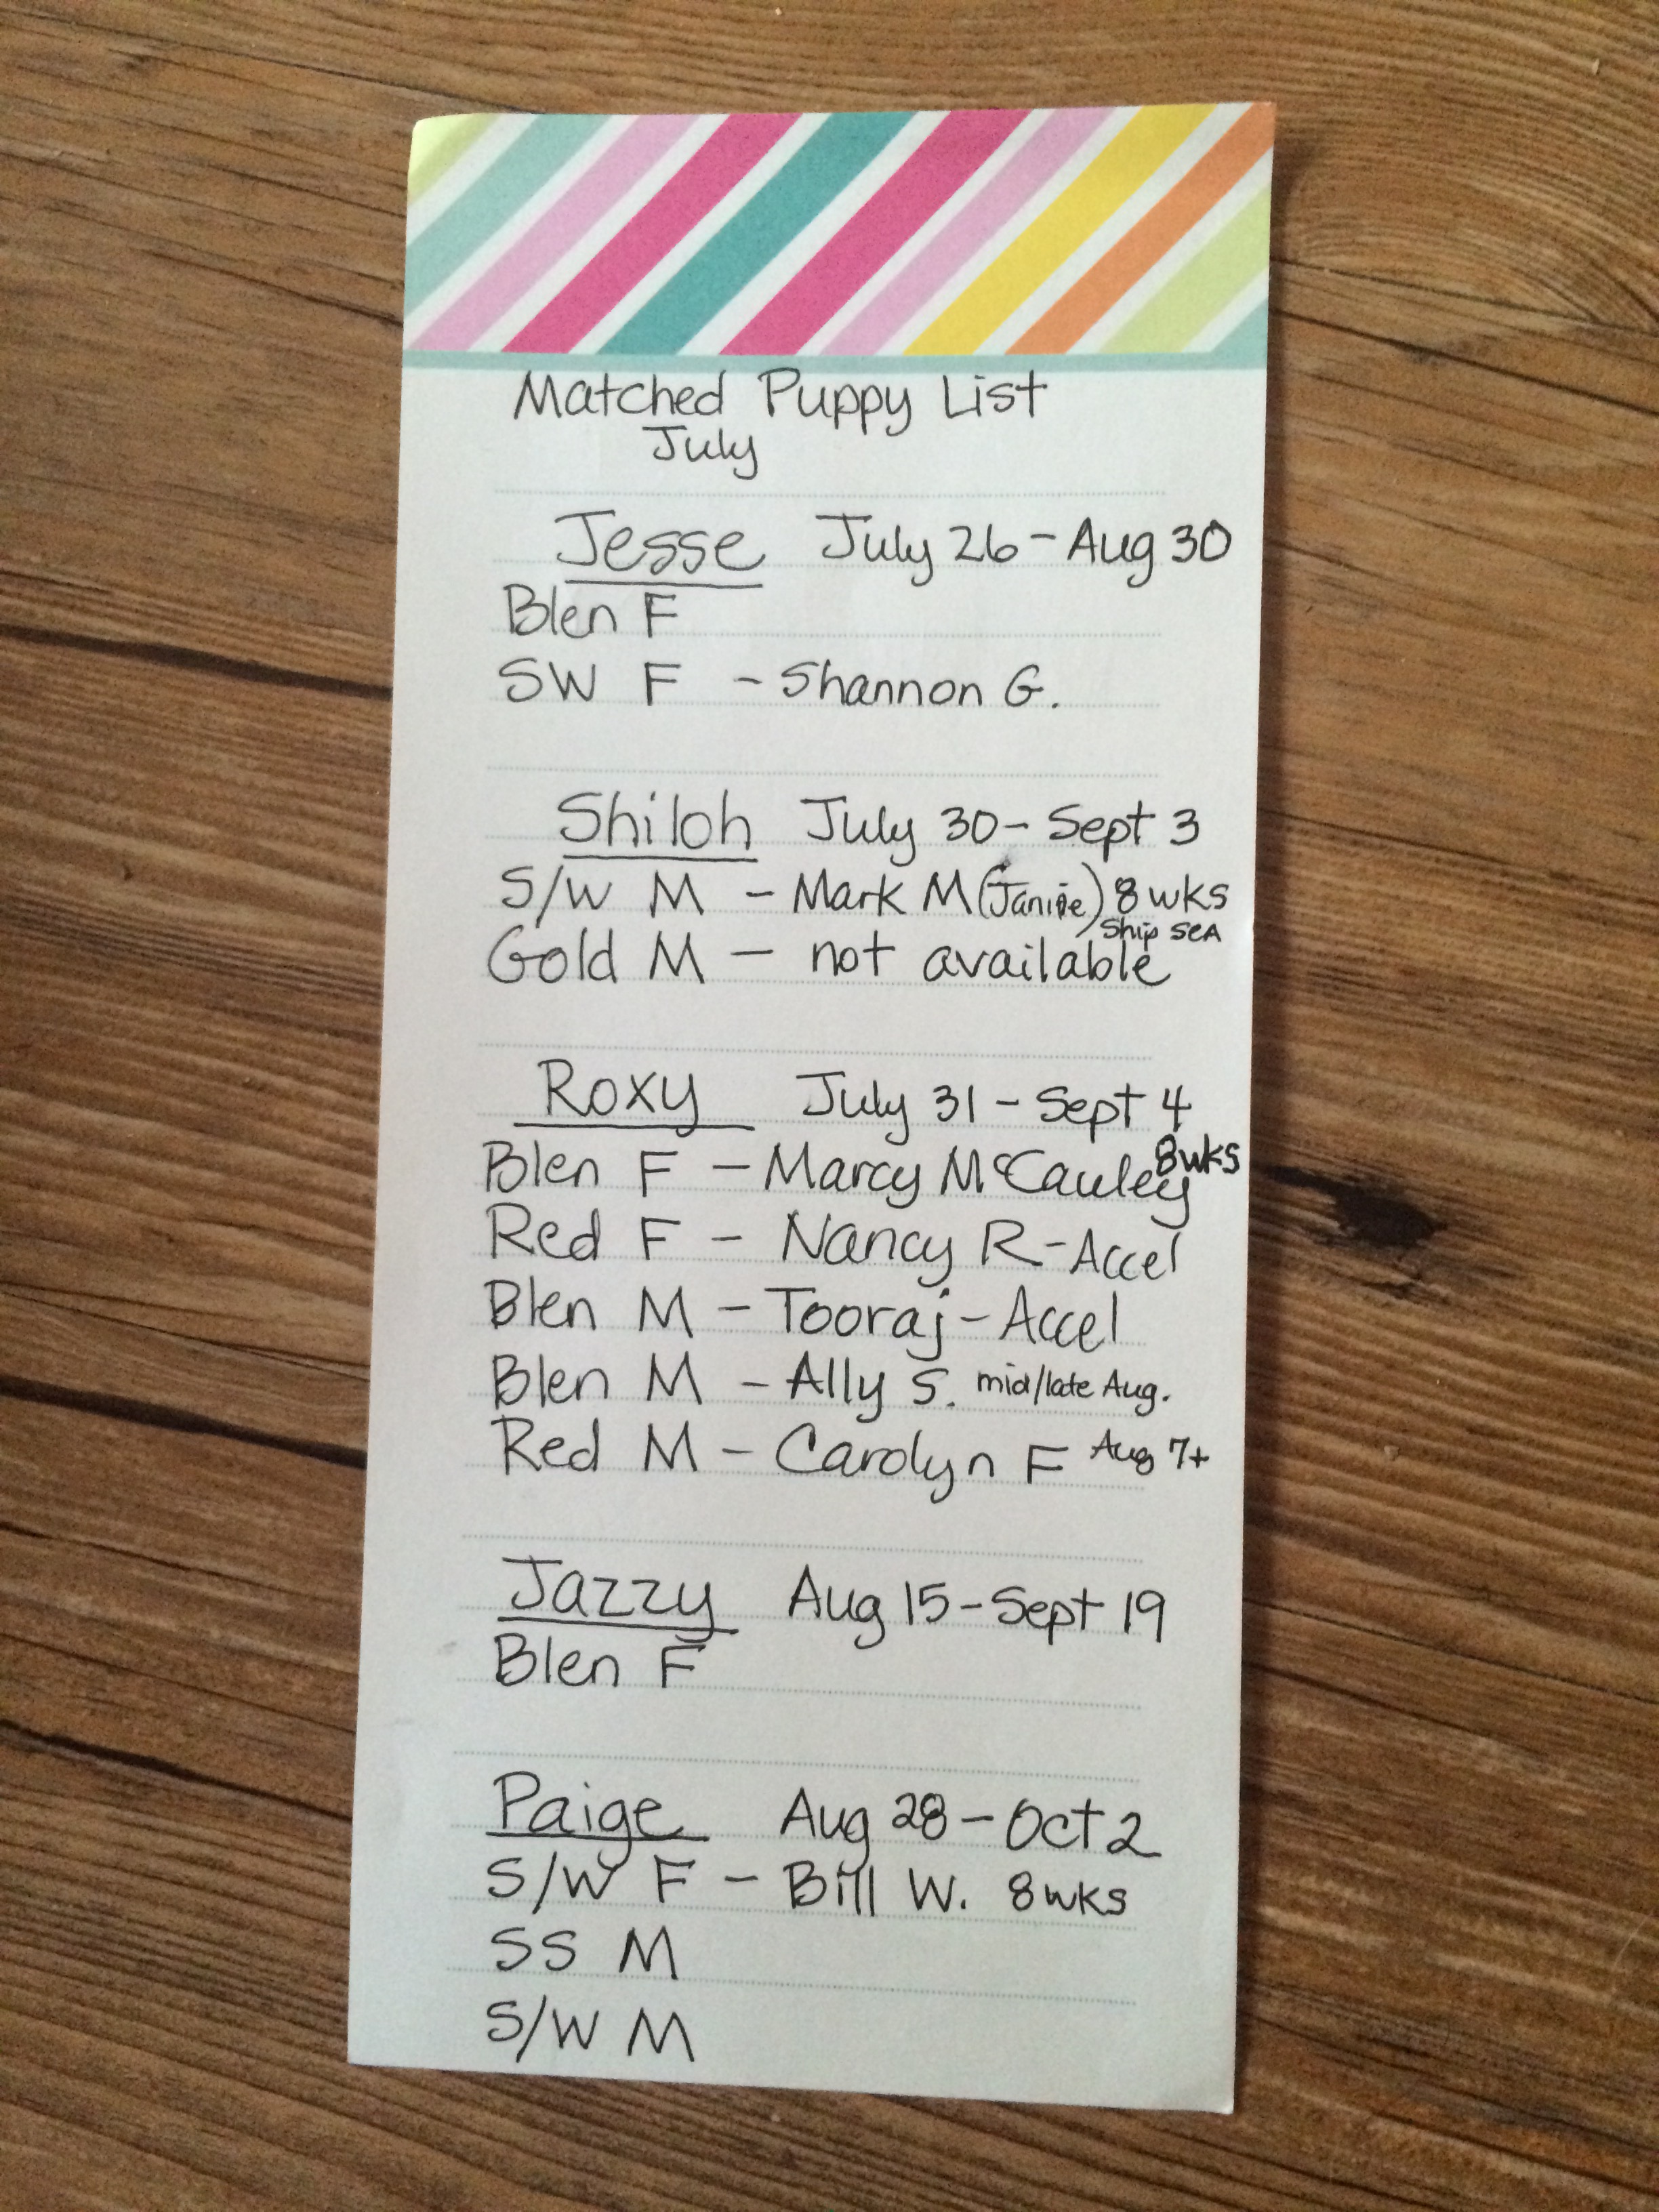 Matched Puppy List
July
Jesse July 26 - Aug 30
Blen F
SW F - Shannon G.
Shiloh July 30 - Sept 3
S/W M - Mark M (Janine) 8 wks
ship SEA
Gold M - not available
Roxy July 31 - Sept 4
Blen F - Marcy McCauley 8wks
Red F - Nancy R - Accel
Blen M - Tooraj - Accel
Blen M - Ally S. mid/late Aug.
Red M - Carolyn F Aug 7+
Jazzy Aug 15 - Sept 19
Blen F
Paige Aug 28 - Oct 2
S/W F - Bill W. 8wks
SS M
S/W M